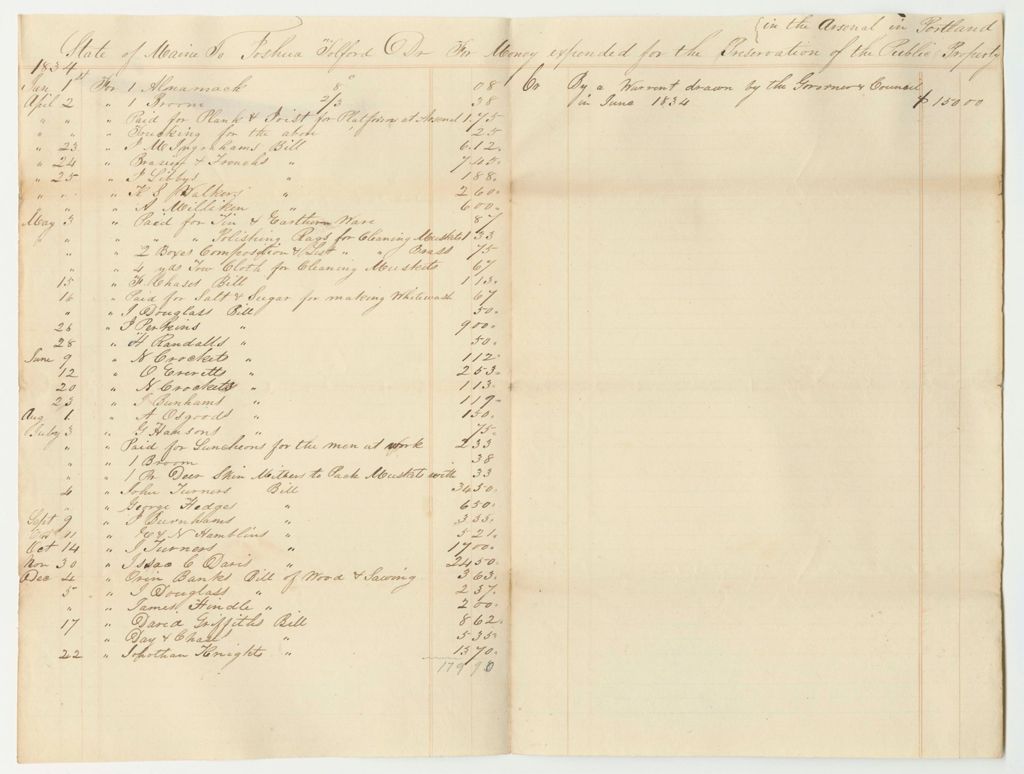 {in the Arsenal in Portland
State of Maine To Joshua Tolford Dr For Money expended for the Preservation of the Public Property
1834
Jan 1st For 1 Almamack 8 " 08
April 2 " 1 Broom 2/3 38
" " " Paid for Plank & Joist for Platform at Arsenal 1.75
" " " Trucking for the above 25
" 23 " J M Ingrahams Bill 6.12.
" 24 " " 7.45.
" 25 " J Libbys " 1 88.
" " " Walkers " 2 60.
" " " A Milliken " 6 00.
May 3 " Paid for Tin & Earthern Ware 87
" " " " " Polishing Rags for Cleaning Muskets 1 33
" " 2 Boxes Composition & " " Brass 75
" " 4 yds Tow Cloth for Cleaning Muskets 67
15 " F Chases Bill 1 13.
16 " Paid for Salt & Sugar for making Whitewash 67
" " J Douglass Bill 50.
26 " J Perkins " 9 00.
28 " Randalls " 50.
June 9 " N Crockets " 1 12
12 " O Everetts " 2 53.
20 " N Crocketts " 1 13.
23 " J Bunhams " 1 19
Aug 1 " A Osgoods " 1 50.
July 3 " G Hansons " 75.
" " Paid for Luncheons for the men at work 2 33
" " 1 Broom 38
" " 1 Pr Deer Skin Mittens to Pack Muskets with 33
4 " John Turners Bill 34 50.
" " George Hedges " 6 50.
Sept 9 " J Burnhams " 3 35.
" 11 " & N Hamblins " 5 21.
Oct 14 " J Turners " 17 00.
Nov 30 " Issac C Davis " 24 50.
Dec 4 " Orin Banks Bill of Wood & Sawing 3 63.
5 " J Douglass " 2 37.
" " James Hindle " 2 00.
17 " David Griffiths Bill 8 62.
" Day & Chase " 5 35.
22 " Jonothan Knights " 13 70.
179 90
Cr By a Warrent drawn by the Governor & Council
in June 1834 $ 150 00